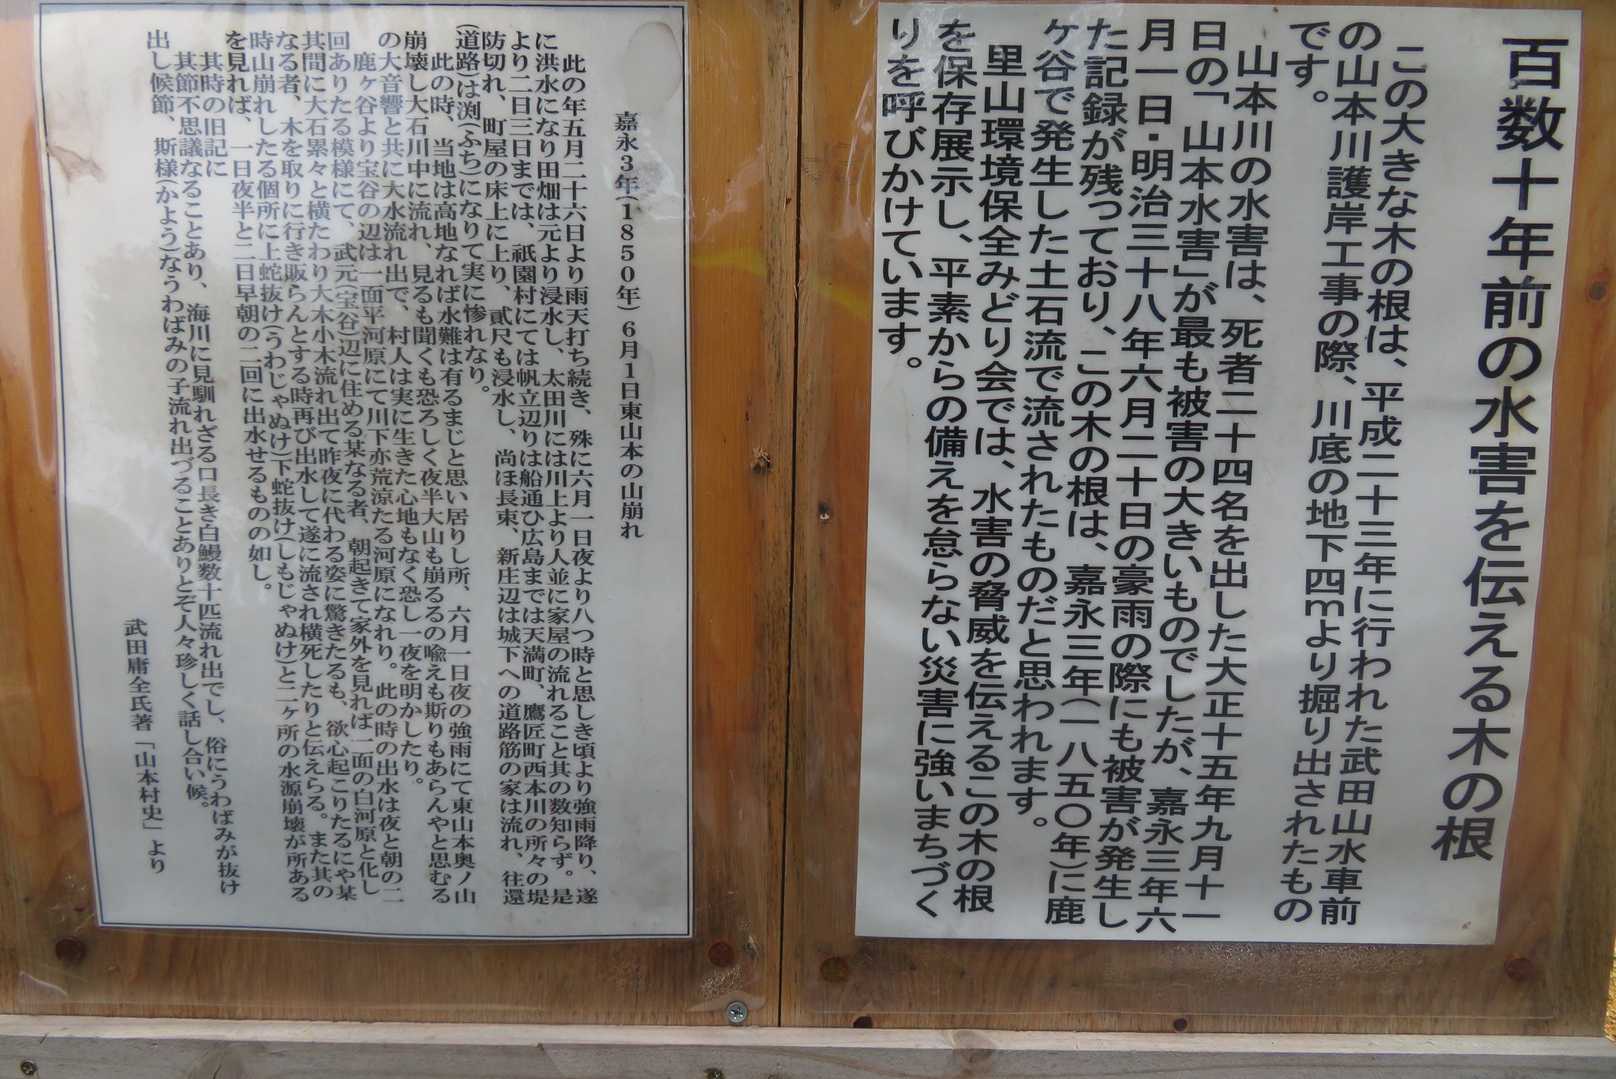 百数十年前の水害を伝える木の根
この大きな木の根は、平成二十三年に行われた武田山水車前
の山本川護岸工事の際、川底の地下四mより掘り出されたもの
です。
山本川の水害は、死者二十四名を出した大正十五年九月十一
日の「山本水害」が最も被害の大きいものでしたが、嘉永三年六
月一日・明治三十八年六月二十日の豪雨の際にも被害が発生し
た記録が残っており、この木の根は、嘉永三年(一八五〇年)に鹿
ケ谷で発生した土石流で流されたものだと思われます。
里山環境保全みどり会では、水害の脅威を伝えるこの木の根
を保存展示し、平素からの備えを怠らない災害に強いまちづく
りを呼びかけています。
嘉永3年(1850年)6月1日東山本の山崩れ
此の年五月二十六日より雨天打ち続き、殊に六月一日夜より八つ時と思しき頃より強雨降り、遂
に洪水になり田畑は元より浸水し、太田川には川上より人並に家屋の流れること其の数知らず。是
より二日三日までは、祇園村にては帆立辺りは船通ひ広島までは天満町、鷹匠町西本川の所々の堤
防切れ、町屋の床上に上り、貳尺も浸水し、尚ほ長束、新庄辺は城下への道路筋の家は流れ、往還
(道路)は渕(ふち)になりて実に惨れなり。
此の時、当地は高地なれば水難は有るまじと思い居りし所、六月一日夜の強雨にて東山本奥ノ山
崩壊し大石川中に流れ、見るも聞くも恐ろしく夜半大山も崩るるの喩えも斯りもあらんやと思むる
の大音響と共に大水流れ出で、村人は実に生きた心地もなく恐し一夜を明かしたり。
鹿ヶ谷より宝谷の辺は一面平河原にて川下亦荒涼たる河原になれり。此の時の出水は夜と朝の二
回ありたる模様にて、武元(宝谷)辺に住める某なる者、朝起きて家外を見れば一面の白河原と化し
其間に大石累々と横たわり大木小木流れ出て昨夜に代わる姿に驚きたるも、欲心起こりたるにや某
なる者、木を取りに行き販らんとする時再び出水して遂に流され横死したりと伝えらる。また其の
時山崩れしたる個所に上蛇抜け(うわじゃぬけ)下蛇抜け(しもじゃぬけ)と二ヶ所の水源崩壊が所ある
を見れば、一日夜半と二日早朝の二回に出水せるものの如し。
其時の旧記に
其節不思議なることあり、海川に見馴れざる口長き白鰻数十匹流れ出でし、俗にうわばみが抜け
出し候節、斯様(かよう)なうわばみの子流れ出づることありとぞ人々珍しく話し合い候。
武田庸全氏著「山本村史」より